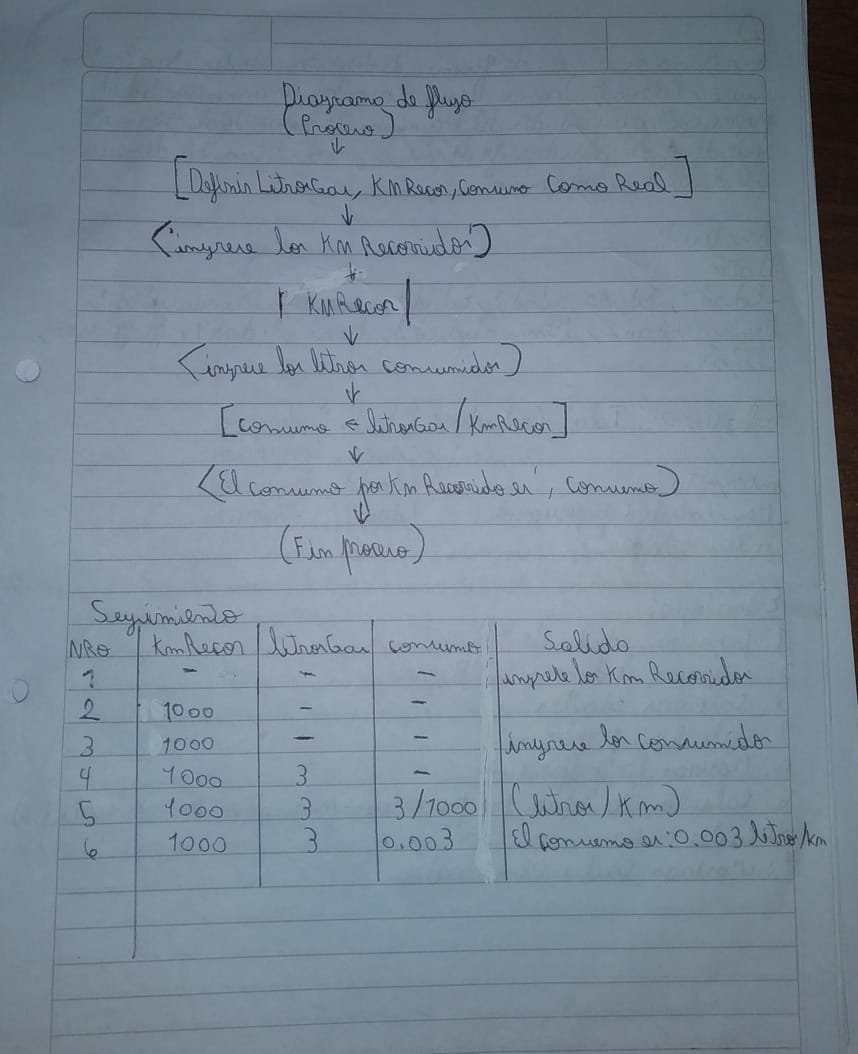 Diagrama de flujo
(Proceso)
↓
[Definir LitrosGas, KMRecor, Consumo Como Real]
↓
<'ingrese los KM Recorridos')
↓
| KMRecor |
↓
<ingrese los litros consumidos)
↓
[Consumo ← litrosGas / KmRecor]
↓
<El consumo por Km Recorrido es', Consumo)
↓
(Fin proceso)
Seguimiento
NRO | KmRecor | litrosGas | consumo | Salida
1 | - | - | - | ingrese los Km Recorridos
2 | 1000 | - | - |
3 | 1000 | - | - | ingrese los consumidos
4 | 1000 | 3 | - |
5 | 1000 | 3 | 3/1000 | (litros/Km)
6 | 1000 | 3 | 0.003 | El consumo es: 0.003 litros/km